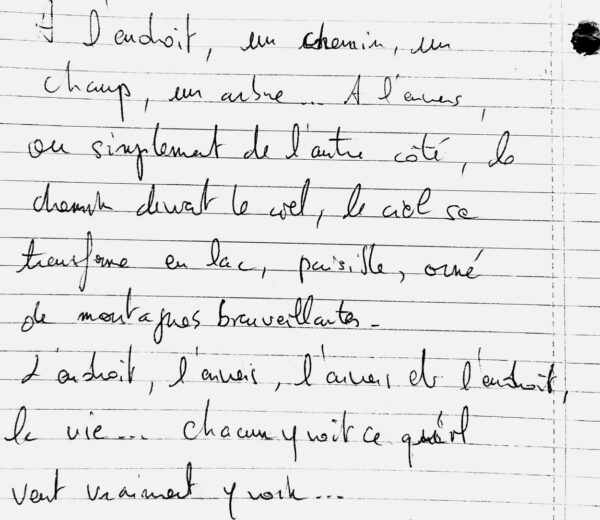 A l'endroit, un chemin, un
champ, un arbre... A l'envers,
ou simplement de l'autre côté, le
chemin devient le ciel, le ciel se
transforme en lac, paisible, orné
de montagnes bienveillantes.
L'endroit, l'envers, l'envers et l'endroit,
la vie... chacun y voit ce qu'il
veut vraiment y voir...